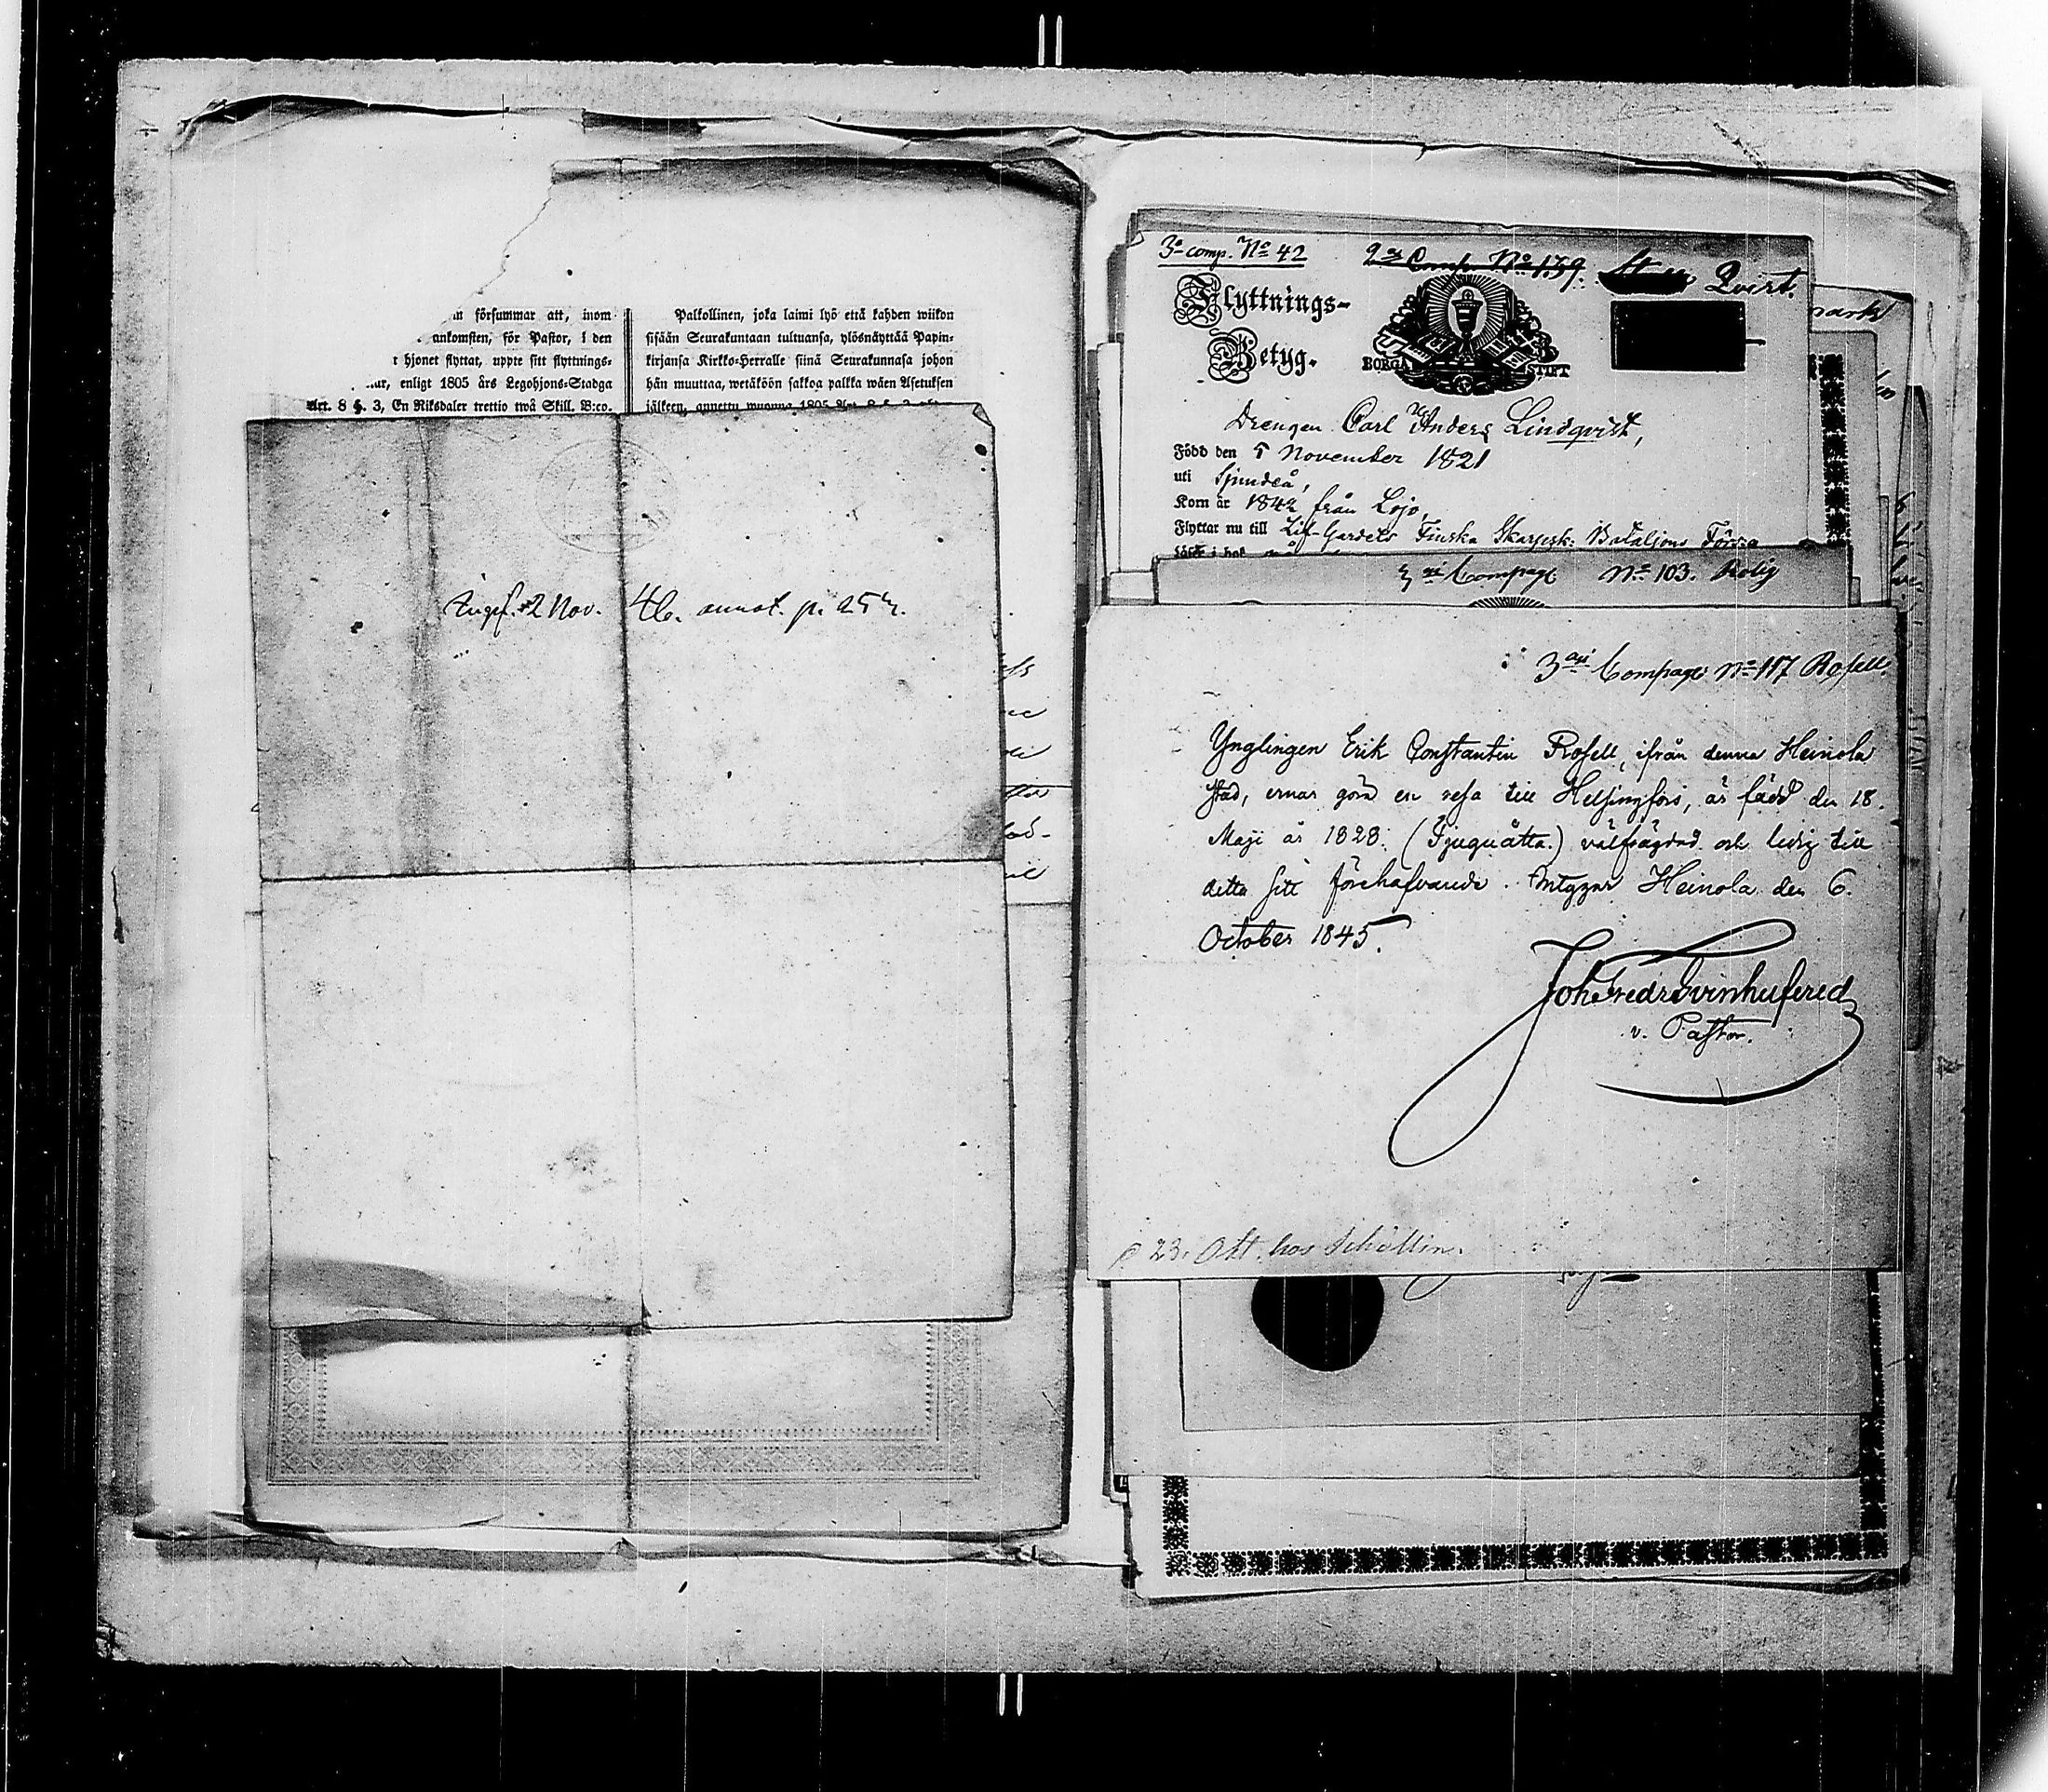 försummar att, inom
ankomsten, för Pastor, i den
hjonet flyttat, uppte sitt flyttnings-
enligt 1805 års Legohjons-Stadga
Art. 8 §. 3, En Riksdaler trettio twå Skill. B:co.
Palkollinen, joka laimi lyö että kahden wiikon
sisään Seurakuntaan tultuansa, ylösnäyttää Papin-
kirjansa Kirkko-Herralle siinä Seurakunnasa johon
hän muuttaa, wetäköön sakkoa palkka wäen Asetuksen
jälkeen, annettu wuonna 1805 Art. 8 §. 3
2 Nov. 46. annot. p.
3e comp. No 42
Comp. No 139. Qvist.
Flyttnings-
Betyg.
BORGÅ STIFT
Drengen Carl Anders Lindqvist,
Född den 5 November 1821
uti Sjundeå,
Kom år 1842 från Lojo,
Flyttar nu till Lif-Gardets Finska Skarpsk: Bataljons Förs:a
Compagt No 103. Rolig
3die Compagt No 117 Rosell.
Ynglingen Erik Constantin Rosell, ifrån denna Heinola
stad, ernar göra en resa till Helsingfors, är född den 18.
Maji år 1828: (Tjuguåtta.) välfrägdad och ledig till
detta sitt förehafvande. Intygar Heinola den 6.
October 1845.
Joh Fredr Svinhufvud
v. Pastor.
23. Ott. hos Schöllin.